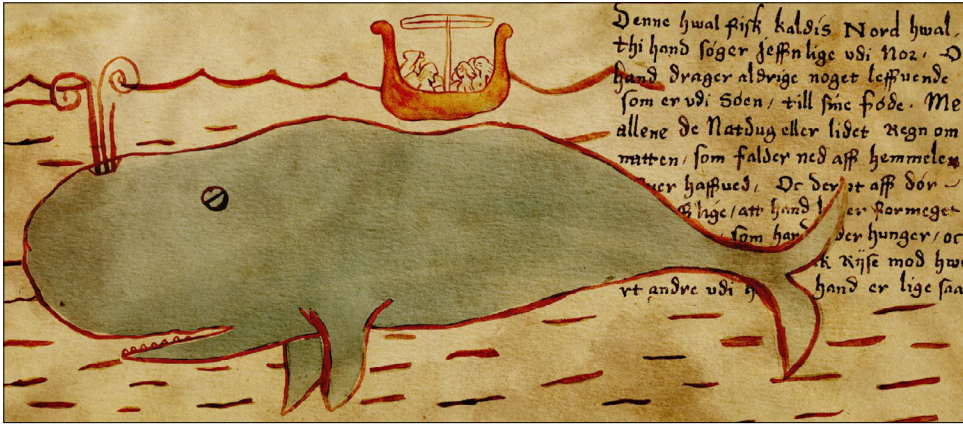 Denne hwal fisk kaldis Nord hwal,
thi hand søger jeffnlige vdi Nor.
hand drager aldrige noget leffuende
som er vdi Søen, till sine føde. Me
allene de Natdug eller lidet Regn om
natten, som falder ned aff hemmelen
haffued, Oc der aff dør
lige, att hand er formeget
som hand der hunger, oc
Rijse mod hwa
rt andre vdi hand er lige saa